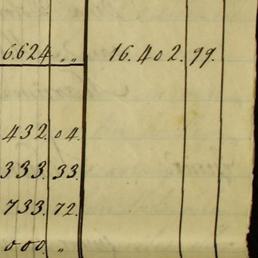 6.624 „ 16.402.99.
432.04.
333.33.
733.72.
000. „